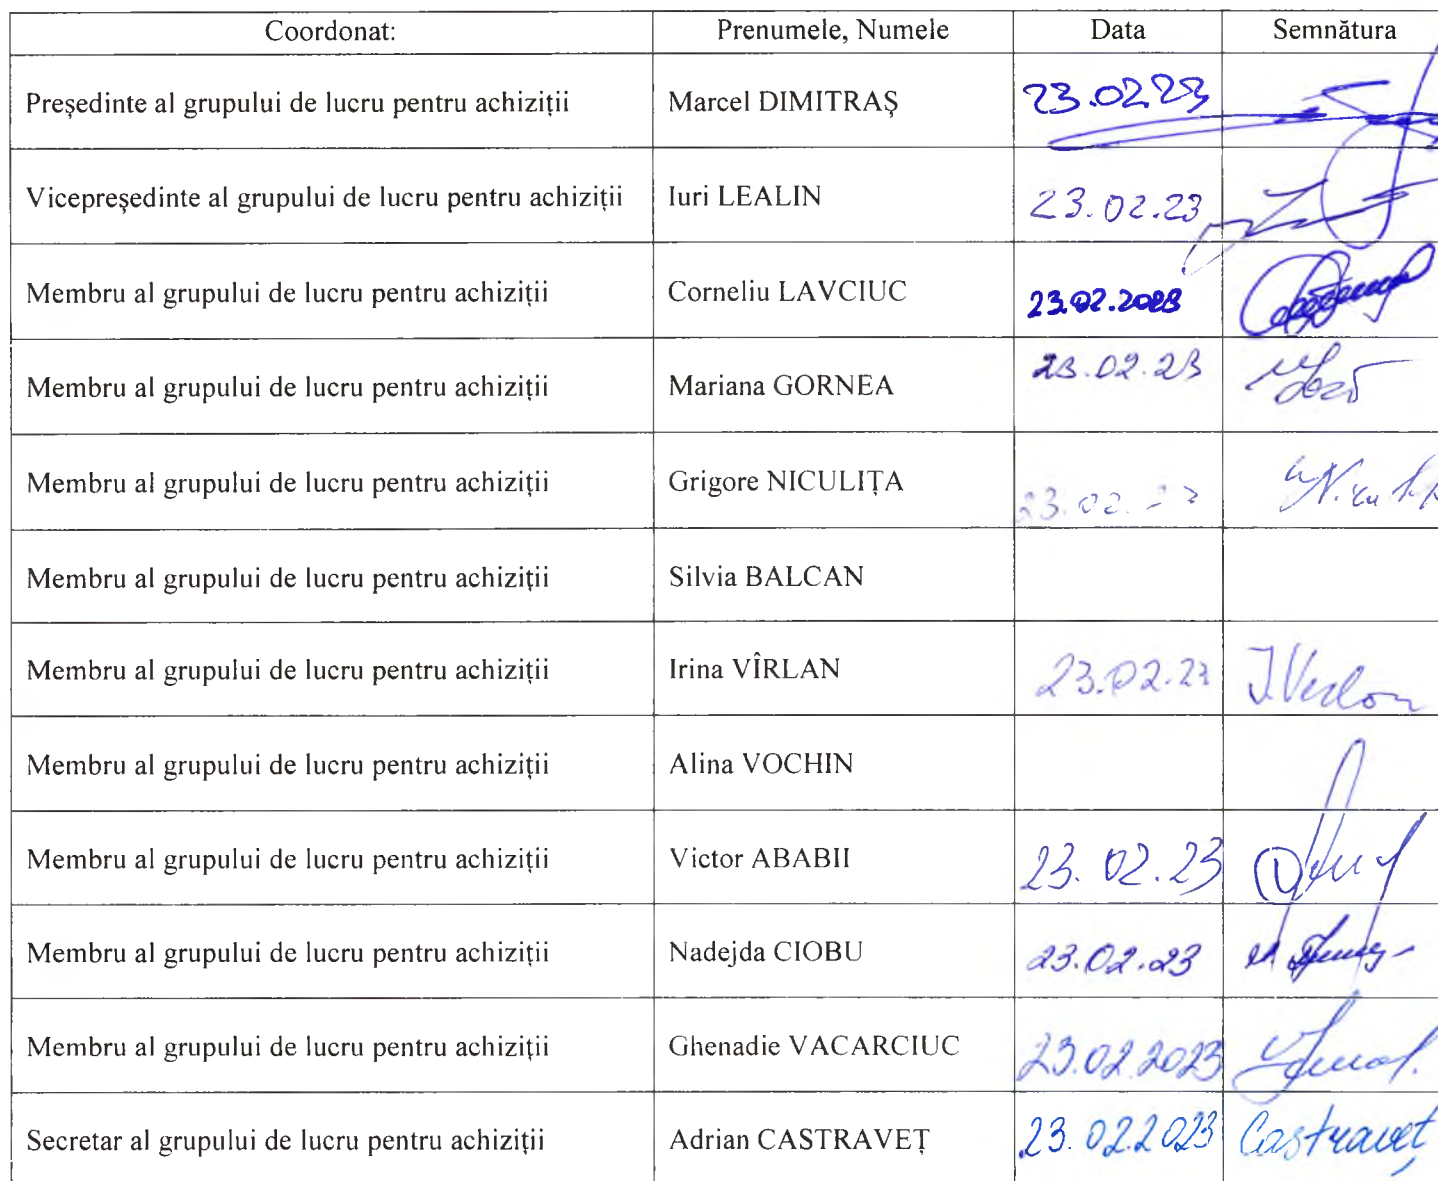 Coordonat: Prenumele, Numele Data Semnătura
Președinte al grupului de lucru pentru achiziții Marcel DIMITRAȘ 23.02.23
Vicepreședinte al grupului de lucru pentru achiziții Iuri LEALIN 23.02.23
Membru al grupului de lucru pentru achiziții Corneliu LAVCIUC 23.02.2023
Membru al grupului de lucru pentru achiziții Mariana GORNEA 23.02.23
Membru al grupului de lucru pentru achiziții Grigore NICULIȚA
Membru al grupului de lucru pentru achiziții Silvia BALCAN
Membru al grupului de lucru pentru achiziții Irina VÎRLAN 23.02.23
Membru al grupului de lucru pentru achiziții Alina VOCHIN
Membru al grupului de lucru pentru achiziții Victor ABABII 23.02.23
Membru al grupului de lucru pentru achiziții Nadejda CIOBU 23.02.23
Membru al grupului de lucru pentru achiziții Ghenadie VACARCIUC 23.02.2023
Secretar al grupului de lucru pentru achiziții Adrian CASTRAVEȚ 23.02.2023 Castraveț